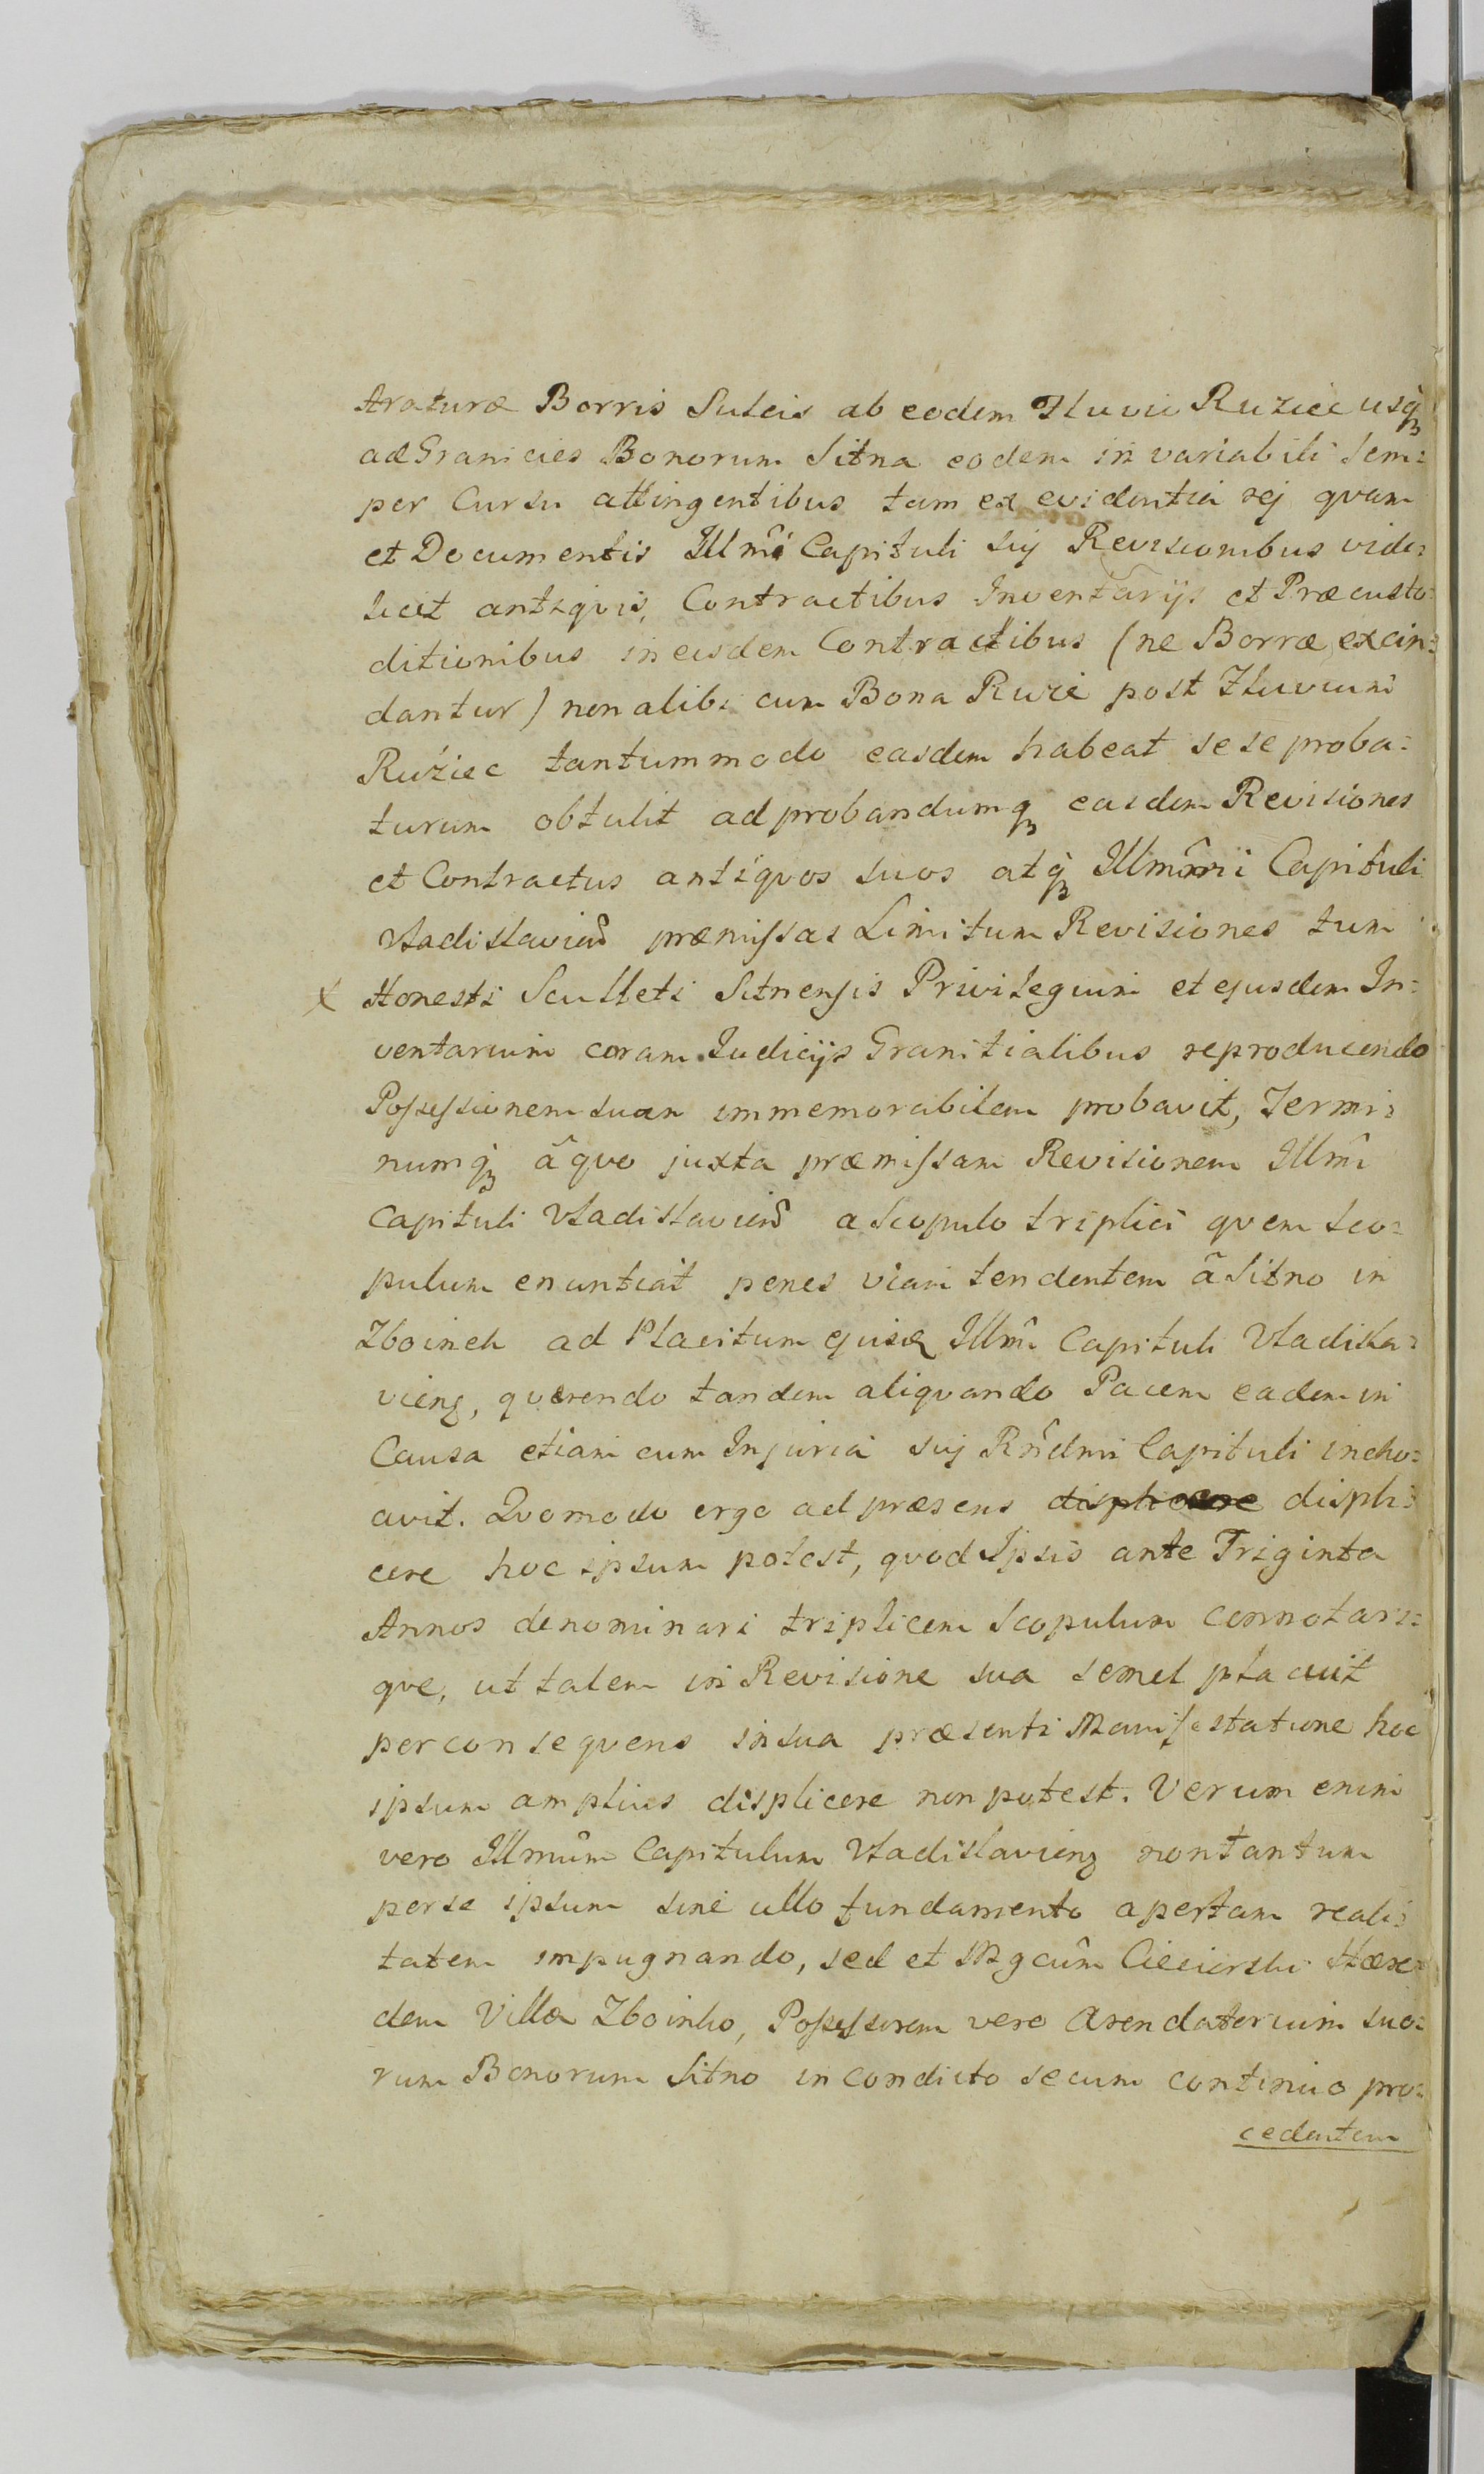 Araturæ Borris Sulcis ab eodem Fluvii Ruziec usq̃
ad Granicies Bonorum Sitna eodem in variabili Sem=
per Cursu attingentibus tam ex evidentia rej quam
et Documentis Illmî Capituli sui Revisionibus vide=
licet antiquis, Contractibus Inventarijs et Præcusto=
ditionibus in eisdem Contractibus (ne Borræ excin=
dantur) non alibi cum Bona Ruże post Fluvium
Ruźiec tantummodo easdem habeat sese proba=
turum obtulit ad probandumq̃ easdem Revisiones
et Contractus antiquos suos atq̃ Illmôrũ Capituli
Vladislavień præmissas Limitum Revisiones tum
x Honesti Sculteti Sitnensis Privilegium et ejusdem In=
ventarium coram Iudicijs Granitialibus reproducendo
Possessionem suam immemorabilem probavit, Termi=
numq̃ â quo juxta præmissam Revisionem Illmî
Capituli Vladislavień a Scopulo triplici quem Sco=
pulum enuntiat penes viam tendentem â Sitno in
Zboinek ad Placitum ejusd Illmî Capituli Vladisla=
vienẓ, querendo tandem aliquando Pacem eadem in
Causa etiam cum Injuria suj Rñdmi Capituli incho=
avit. Quomodo ergo ad præsens displicere displi=
cere hoc ipsum potest, quod Ipsis ante Triginta
Annos denominari triplicem Scopulum connotari=
que, ut talem in Revisione sua semel placuit
per consequens in sua præsenti Manifestatione hoc
ipsum amplius displicere non potest. Verum enim
vero Illmûm Capitulum Vladislavienẓ non tantum
per se ipsum sine ullo fundamento apertam reali=
tatem impugnando, sed et Mgcûm Ciecierski Hære=
dem Villæ Zboinko, Possessorem vero Arendatorium suo=
rum Bonorum Sitno in condicto secum continuo pro=
cedentem